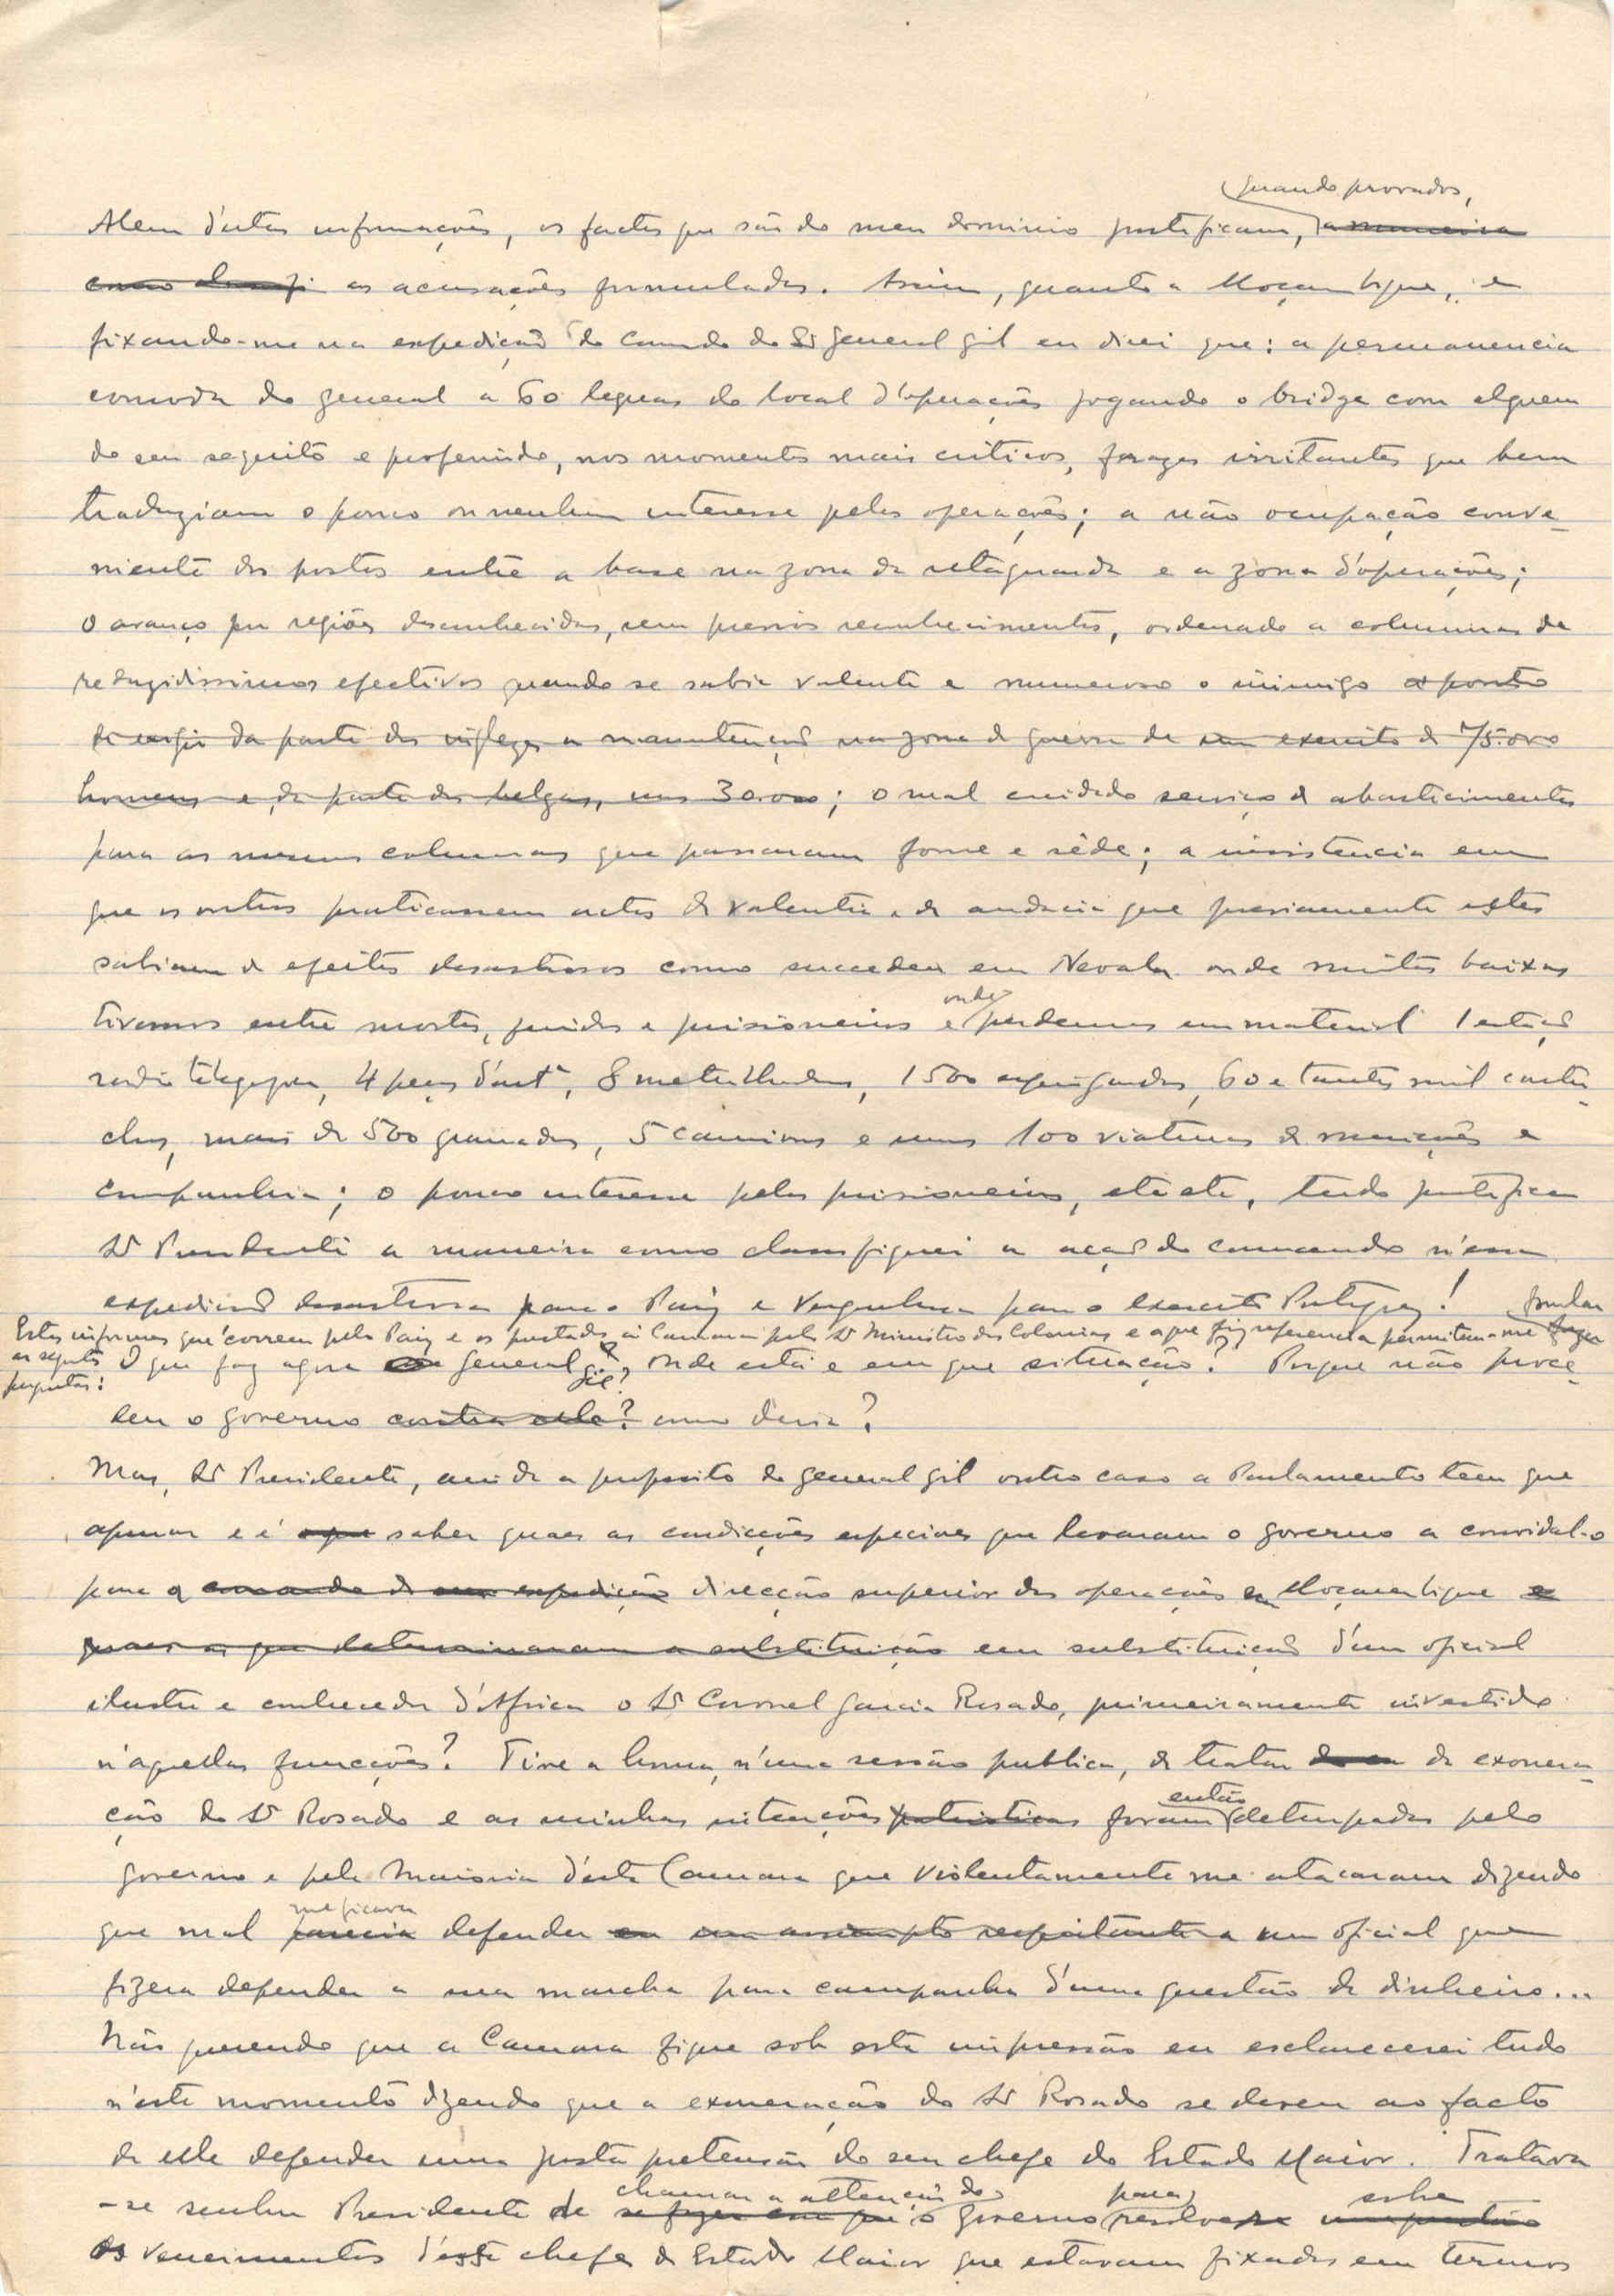 quando provados,
Alem d'estas informações, os factos que são do meu dominio justificam, a maneira
como classifi as acusações formuladas. Assim, quanto a Moçambique, e
fixando-me na expedição do Comando do Sr General Gil eu direi que: a permanencia
comoda do general a 60 leguas do local d'operações jogando o bridge com alguem
do seu sequito e proferindo, nos momentos mais criticos, frazes irritantes que bem
traduziam o pouco ou nenhum interesse pelas operações; a não ocupação conve-
niente dos postos entre a base na zona da retaguarda e a zona d'operações;
o avanço por regiões desconhecidas, sem previos reconhecimentos, ordenado a columnas de
reduzidissimos efectivos quando se sabia valente e numeroso o inimigo a ponto
de exigir da parte dos inglezes a manutenção na zona de guerra de um exercito de 75.000
homens e, da parte dos belgas, uns 30.000; o mal cuidado serviço de abastecimentos
para as mesmas columnas que passaram fome e sêde; a insistencia em
que os outros praticassem actos de valentia e de audacia que previamente estes
sabiam de efeitos desastrosos como sucedeu em Nevala onde muitas baixas
onde
tivemos entre mortos, feridos e prisioneiros e perdemos em material 1 estação
radio telegrafica, 4 peças d'art.ª, 8 metralhadoras, 1500 espingardas, 60 e tantos mil cartu-
chos, mais de 500 granadas, 5 camions e umas 100 viaturas de munições e
companhia; o pouco interesse pelos prisioneiros, etc etc, tudo justifica
Sr Presidente a maneira como classifiquei a acção do comando n'essa
expedição desastrosa para o Paiz e vergonhosa para o Exercito Portuguez!
formular
Estes informes que correm pelo Paiz e os prestados á Camara pelo Sr Ministro das Colonias e a que fiz referencia permitem-me fazer
as seguintes
perguntas:
O que faz agora o General Gil?, onde está e em que situação? Porque não proce-
Gil?
deu o governo contra elle? como devia?
Mas, Sr Presidente, ainda a proposito do general Gil outro caso o Parlamento tem que
apurar e é o que saber quaes as condições especiaes que levaram o governo a convidal-o
para a comando de uma expedição direcção superior das operações em Moçambique e
quaes as que determinaram a substituição em substituição d'um oficial
ilustre e conhecedor d'Africa o Sr Coronel Garcia Rosado, primeiramente investido
n'aquellas funcções? Tive a honra, n'uma sessão publica, de tratar da exonera-
então
ção do Sr Rosado e as minhas intenções patrioticas foram deturpadas pelo
governo e pela Maioria d'esta Camara que violentamente me atacaram dizendo
me ficava
que mal parecia defender eu um assumpto respeitante a um oficial que
fizera depender a sua marcha para campanha d'uma questão de dinheiro...
Não querendo que a Camara fique sob esta impressão eu esclarecerei tudo
n'este momento dizendo que a exoneração do Sr Rosado se deveu ao facto
de elle defender uma justa pretensão do seu chefe do Estado Maior. Tratava
chamar a attenção do para sobre
-se senhor Presidente de se fazer com que o governo resolvesse uma questão
os vencimentos d'esse chefe de Estado Maior que estavam fixados em termos